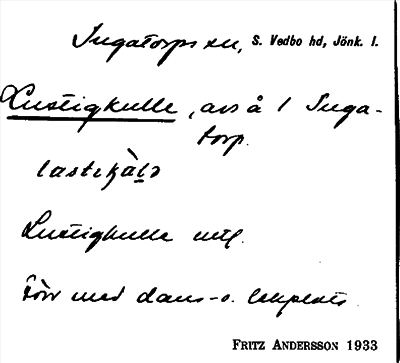 Ingatorps sn, S. Vedbo hd, Jönk. l.
Lustigkulle, avs å 1 Inga-
torp.
Lustigkulle utl.
Förr med dans- o. lekplats.
FRITZ ANDERSSON 1933